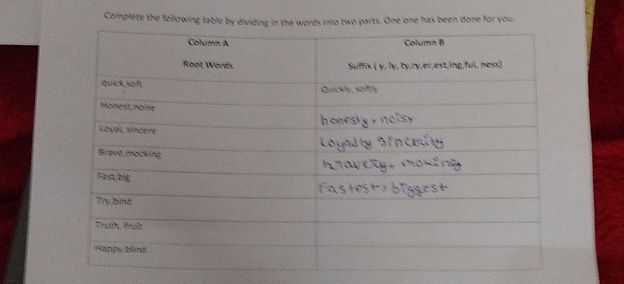 Complete the following table by dividing in the words into two parts. One one has been done for you.
Column A Column B
Root Words Suffix ( y, ly, ty,ry,er,est,ing,ful, ness)
quick,soft Quickly, softly
Honest,noise honesty, noisy
Loyal, sincere Loyally
Brave,mocking bravery, moking
Fast,big Fastest, biggest
Try,bind
Truth, fruit
Happy,blind